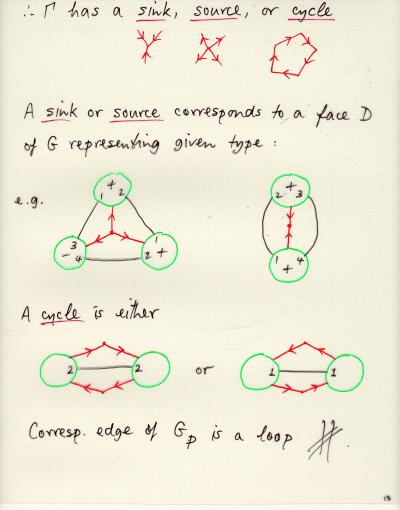 ∴ Γ has a sink, source, or cycle
A sink or source corresponds to a face D
of G representing given type:
e.g.
+
1 2
3
- 4
1
2 +
2 + 3
1 4
+
A cycle is either
2 2 or 1 1
Corresp. edge of Gp is a loop #.
13